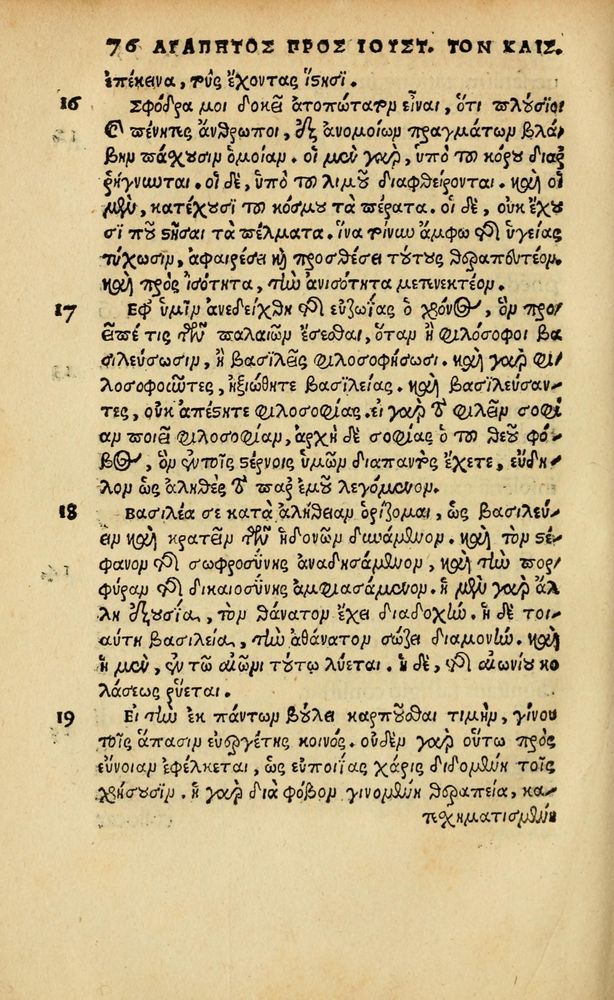 76 ΑΓΑΠΗΤΟΣ ΠΡΟΣ ΙΟΥΣΤ. ΤΟΝ ΚΑΙΣ.
ἐπέκεινα, τοὺς ἔχοντας ἵστησι.
16 Σφόδρα μοι δοκεῖ ἀτοπώτατον εἶναι, ὅτι πλούσιοι
καὶ πένητες ἄνθρωποι, ἐξ ἀνομοίων πραγμάτων βλά-
βην πάσχουσιν ὁμοίαν. οἱ μὲν γὰρ, ὑπὸ τοῦ κόρου διαρ-
ρήγνυνται. οἱ δὲ, ὑπὸ τοῦ λιμοῦ διαφθείρονται. καὶ οἱ
μὲν, κατέχουσι τοῦ κόσμου τὰ πέρατα. οἱ δὲ, οὐκ ἔχου
σι ποῦ στῆσαι τὰ πέλματα. ἵνα τοίνυν ἄμφω τῆς ὑγείας
τύχωσιν, ἀφαιρέσει καὶ προσθέσει τούτους θεραπευτέον.
καὶ πρὸς ἰσότητα, τὴν ἀνισότητα μετενεκτέον.
17 Ἐφ ὑμῖν ἀνεδείχθη τῆς εὐζωΐας ὁ χρόνος, ὃν προ-
εῖπέ τις τῶν παλαιῶν ἔσεσθαι, ὅταν ἢ φιλόσοφοι βα
σιλεύσωσιν, ἢ βασιλεῖς φιλοσοφήσωσι. καὶ γὰρ φι-
λοσοφοῦντες, ἠξιώθητε βασιλείας. καὶ βασιλεύσαν-
τες, οὐκ ἀπέστητε φιλοσοφίας. εἰ γὰρ τὸ φιλεῖν σοφί
αν ποιεῖ φιλοσοφίαν, ἀρχὴ δὲ σοφίας ὁ τοῦ θεοῦ φό-
βος, ὃν ἐν τοῖς στέρνοις ὑμῶν διαπαντὸς ἔχετε, εὔδη-
λον ὡς ἀληθὲς τὸ παρ ἐμοῦ λεγόμενον.
18 Βασιλέα σε κατὰ ἀλήθειαν ὁρίζομαι, ὡς βασιλεύ-
ειν καὶ κρατεῖν τῶν ἡδονῶν δυνάμενον. καὶ τὸν στέ-
φανον τῆς σωφροσύνης ἀναδησάμενον, καὶ τὴν πορ-
φύραν τῆς δικαιοσύνης ἀμφιασάμενον. ἡ μὲν γὰρ ἄλ-
λη ἐξουσία, τὸν θάνατον ἔχει διαδοχὴν. ἡ δὲ τοι-
αύτη βασιλεία, τὴν ἀθάνατον σώζει διαμονὴν. καὶ
ἡ μὲν, ἐν τῷ αἰῶνι τούτῳ λύεται. ἡ δὲ, τῆς αἰωνίου κο
λάσεως ῥύεται.
19 Εἰ τὴν ἐκ πάντων βούλει καρποῦσθαι τιμὴν, γίνου
τοῖς ἅπασιν εὐεργέτης κοινός. οὐδὲν γὰρ οὕτω πρὸς
εὔνοιαν ἐφέλκεται, ὡς εὐποιΐας χάρις διδομένη τοῖς
χρήζουσιν. ἡ γὰρ διὰ φόβον γινομένη θεραπεία, κα-
τεσχηματισμένη